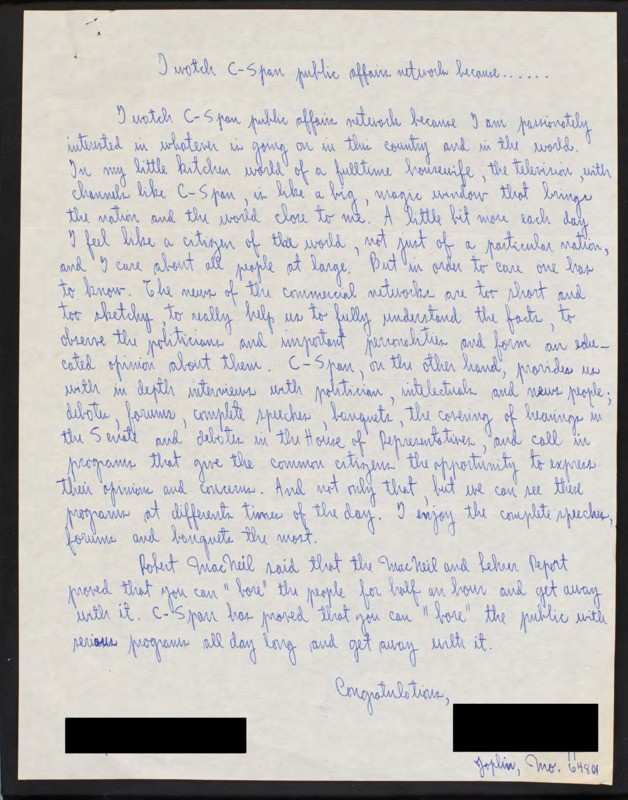 I watch C-Span public affairs network because......
I watch C-Span public affairs network because I am passionately
interested in whatever is going on in this country and in the world.
In my little kitchen world of a fulltime housewife, the television, with
channels like C-Span, is like a big, magic window that brings
the nation and the world close to me. A little bit more each day
I feel like a citizen of the world, not just of a particular nation,
and I care about all people at large. But in order to care one has
to know. The news of the commercial networks are too short and
too sketchy to really help us to fully understand the facts, to
observe the politicians and important personalities and form an edu-
cated opinion about them. C-Span, on the other hand, provides us
with in depth interviews with politician, intelectuals and news people;
debates, forums, complete speeches, banquets, the covering of hearings in
the Senate and debates in the House of Representatives, and call in
programs that give the common citizens the opportunity to express
their opinions and concerns. And not only that, but we can see these
programs at differents times of the day. I enjoy the complete speeches,
forums and banquets the most.
Robert MacNeil said that the MacNeil and Lehrer Report
proved that you can "bore" the people for half an hour and get away
with it. C-Span has proved that you can "bore" the public with
serious programs all day long and get away with it.
Congratulations,
Joplin, Mo. 64801